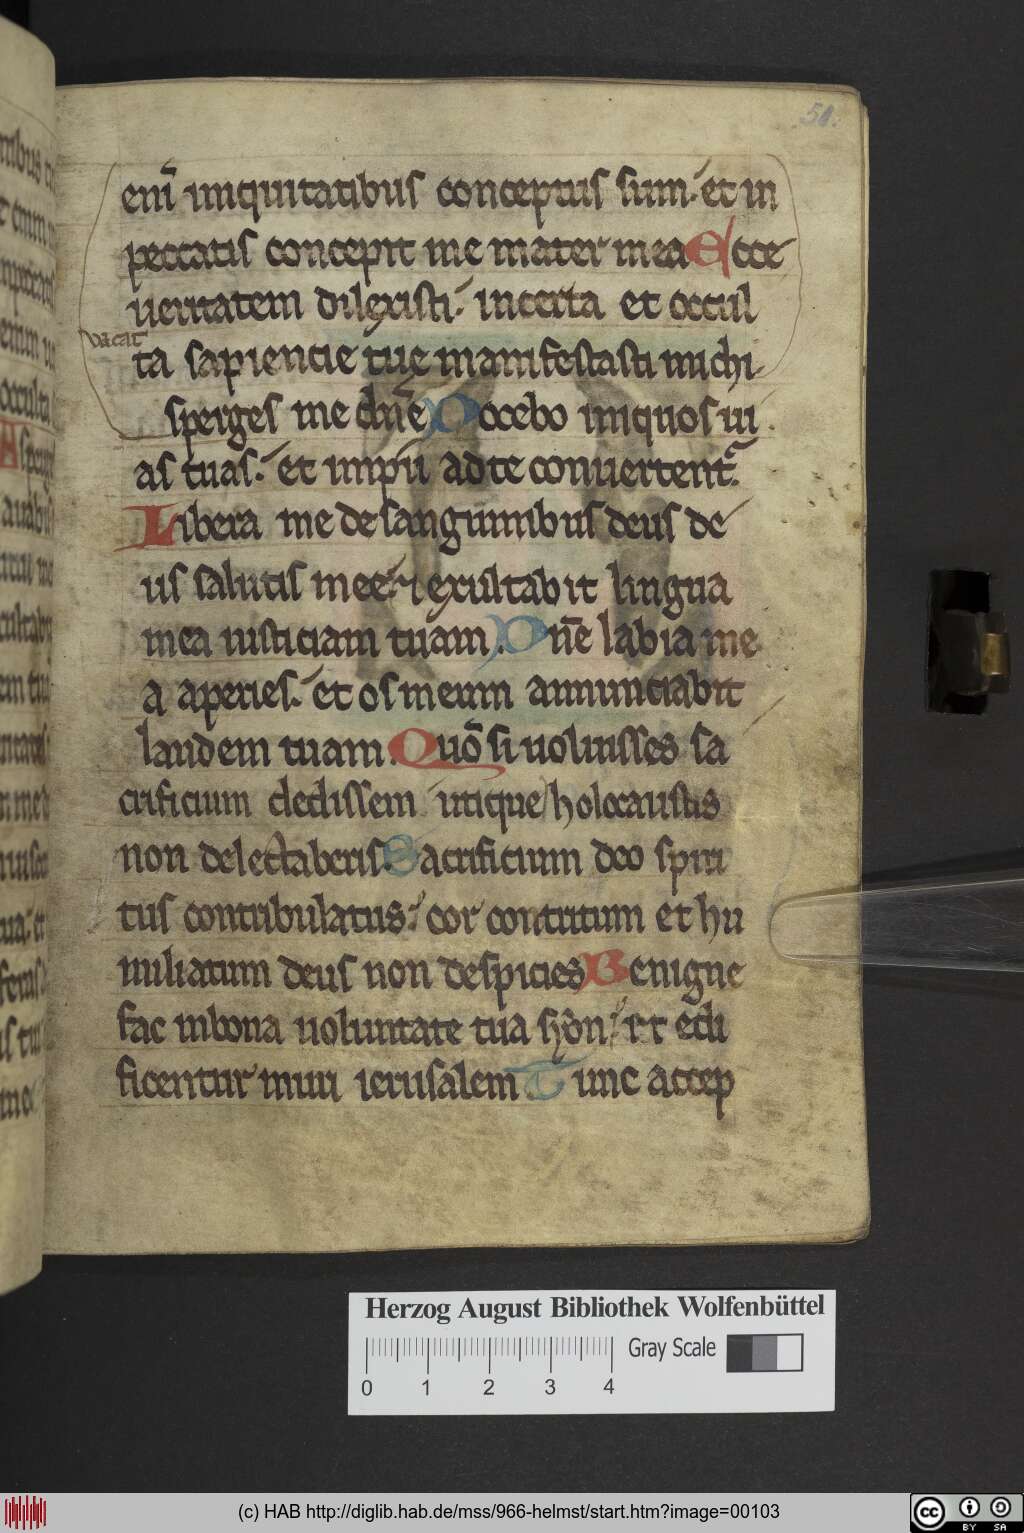 51.
enī iniquitatibus conceptus sum. et in
peccatis concepit me mater mea Ecce
ueritatem dilexisti. incerta et occul
vacat
ta sapiencie tue manifestasti michi
sperges me dn̄e Docebo iniquos ui
as tuas. et impii ad te conuertent᷑.
Libera me de sanguinibus deus de
us salutis mee. 7 exultabit lingua
mea iusticiam tuam. Dn̄e labia me
a aperies. et os meum annunciabit
laudem tuam. Quō si uoluisses sa
crificium dedissem utique holocaustis
non delectaberis. Sacrificium deo spiri
tus contribulatus. cor contritum et hu
miliatum deus non despicies Benigne
fac in bona uoluntate tua syon. et edi
ficentur muri ierusalem Tunc accep
Herzog August Bibliothek Wolfenbüttel
Gray Scale
0 1 2 3 4
(c) HAB http://diglib.hab.de/mss/966-helmst/start.htm?image=00103
cc BY SA